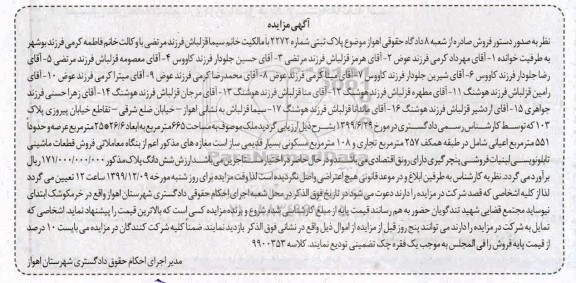 آگهی مزایده
نظر به صدور دستور فروش صادره از شعبه ۸ دادگاه حقوقی اهواز موضوع پلاک ثبتی شماره ۲۲۷۲ با مالکیت خانم سیما قزلباش فرزند مرتضی با وکالت خانم فاطمه کرمی فرزند بوشهر
به طرفیت خوانده ۱- آقای مهرداد کرمی فرزند عوض ۲- آقای هرمز قزلباش فرزند مرتضی ۳- آقای حسین جلودار فرزند کاووس ۴- آقای معصومه قزلباش فرزند مرتضی ۵- آقای
رضا جلودار فرزند کاووس ۶- آقای شیرین جلودار فرزند کاووس ۷- آقای مینا کرمی فرزند عوض ۸- آقای محمدرضا کرمی فرزند عوض ۹- آقای میترا کرمی فرزند عوض ۱۰- آقای
رامین قزلباش فرزند هوشنگ ۱۱- آقای مطهره قزلباش فرزند هوشنگ ۱۲- آقای منا قزلباش فرزند هوشنگ ۱۳- آقای مرجان قزلباش فرزند هوشنگ ۱۴- آقای زهرا حسنی فرزند
جواهری ۱۵- آقای اردشیر قزلباش فرزند هوشنگ ۱۶- آقای ماندانا قزلباش فرزند هوشنگ ۱۷- سیما قزلباش به نشانی اهواز - خیابان ضلع شرقی - تقاطع خیابان پیروزی پلاک
۱۰۳ که توسط کارشناس رسمی دادگستری در مورخ ۱۳۹۹/۶/۲۹ بشرح ذیل ارزیابی گردید ملک موصوف به مساحت ۶۶۵ متر مربع به ابعاد ۲۶/۶*۲۵ متر مربع عرصه و حدودا
۵۵۱ متر مربع اعیانی شامل در طبقه همکف ۲۵۷ متر مربع تجاری و ۱۰۸ متر مربع مسکونی بسیار قدیمی ساز است مغازه های مذکور اعم از بنگاه معاملاتی فروش قطعات ماشینی
تابلونویسی لبنیات فروشی پنچر گیری دارای رونق اقتصادی می باشند و در حال حاضر در اختیار مستاجرین می باشد ارزش شش دانگ پلاک مذکور ۱۷۱/۰۰۰/۰۰۰/۰۰۰ ریال
برآورد می گردد. نظریه کارشناس به طرفین ابلاغ و در موعد قانونی هیچ اعتراضی واصل نگردیده است لذا وقت مزایده برای روز شنبه مورخه ۱۳۹۹/۱۲/۰۹ ساعت ۱۲ تعیین می گردد
لذا از کلیه اشخاصی که قصد شرکت در مزایده را دارند دعوت می شود در تاریخ فوق الذکر در محل شعبه اجرای احکام حقوقی دادگستری شهرستان اهواز واقع در خرمکوشک ابتدای
نیوساید مجتمع قضایی شهید تندگویان حضور به هم رسانند قیمت پایه از مبلغ کارشناسی شده شروع و برنده مزایده کسی است که بالاترین قیمت را پیشنهاد نماید. اشخاصی که
تمایل به شرکت در مزایده را دارند می توانند پنج روز قبل از مزایده از اموال ذیل واقع در نشانی فوق الذکر بازدید نمایند. ضمنا کلیه شرکت کنندگان در مزایده می بایست ۱۰ درصد
از قیمت پایه فروش را فی المجلس به موجب یک فقره چک تضمینی تودیع نمایند. کلاسه ۹۹۰۰۳۵۳
مدیر اجرای احکام حقوق دادگستری شهرستان اهواز